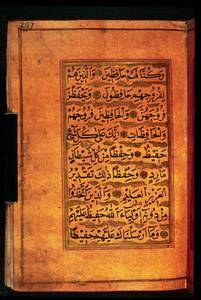 وكنا لهم حافظين والذين هم
لفروجهم حافظون ويحفظن
فروجهن والحافظين فروجهم
والحافظات انك على كل شئ
حفيظ وحفظا من كل شيطان
مارد وحفظا ذلك تقدير
العزيز العليم والذين اتخذوا
من دونه اولياء الله حفيظ عليهم
وما ارسلناك عليهم حفيظا